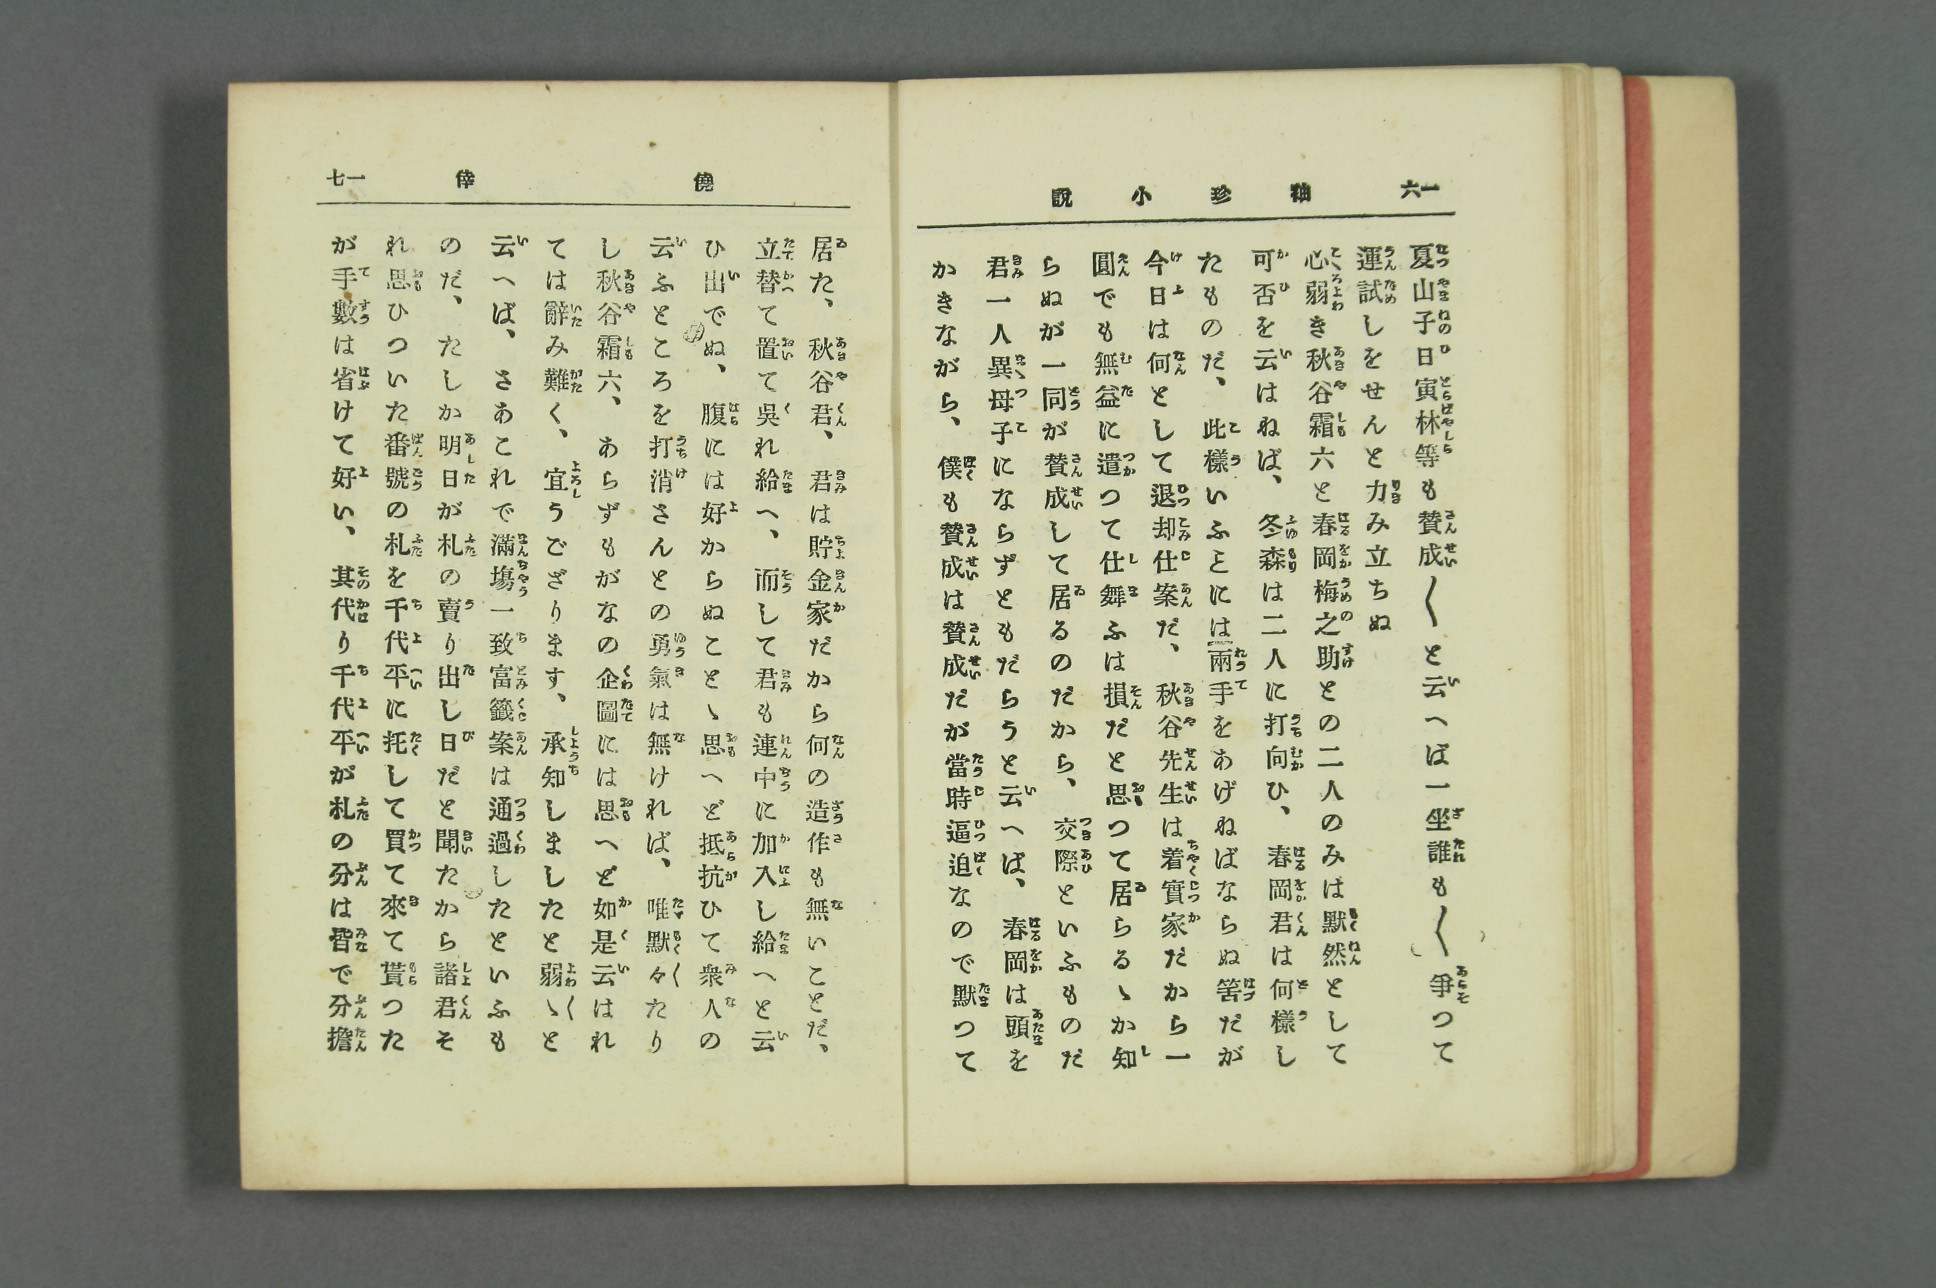 一六 袖珍小說
夏山子日寅林等も贊成〱と云へば一坐誰も〱爭つて
運試しをせんと力み立ちぬ
心弱き秋谷霜六と春岡梅之助との二人のみは默然として
可否を云はねば、冬森は二人に打向ひ、春岡君は何樣し
たものだ、此樣いふときには兩手をあげねばならぬ筈だが
今日は何として退却仕案だ、秋谷先生は着實家だから一
圓でも無益に遣つて仕舞ふは損だと思つて居らるゝか知
らぬが一同が贊成して居るのだから、交際といふものだ
君一人異母子にならずともだらうと云へば、春岡は頭を
かきながら、僕も贊成は贊成だが當時逼迫なので默つて
僥倖 一七
居た、秋谷君、君は貯金家だから何の造作も無いことだ、
立替て置て吳れ給へ、而して君も連中に加入し給へと云
ひ出でぬ、腹には好からぬことゝ思へど抵抗ひて衆人の
云ふところを打消さんとの勇氣は無ければ、唯默々たり
し秋谷霜六、あらずもがなの企圖には思へど如是云はれ
ては辭み難く、宜うござります、承知しましたと弱ゝと
云へば、さあこれで滿塲一致富籤案は通過したといふも
のだ、たしか明日が札の賣り出し日だと聞たから諸君そ
れ思ひついた番號の札を千代平に托して買て來て貰つた
が手數は省けて好い、其代り千代平が札の分は皆で分擔